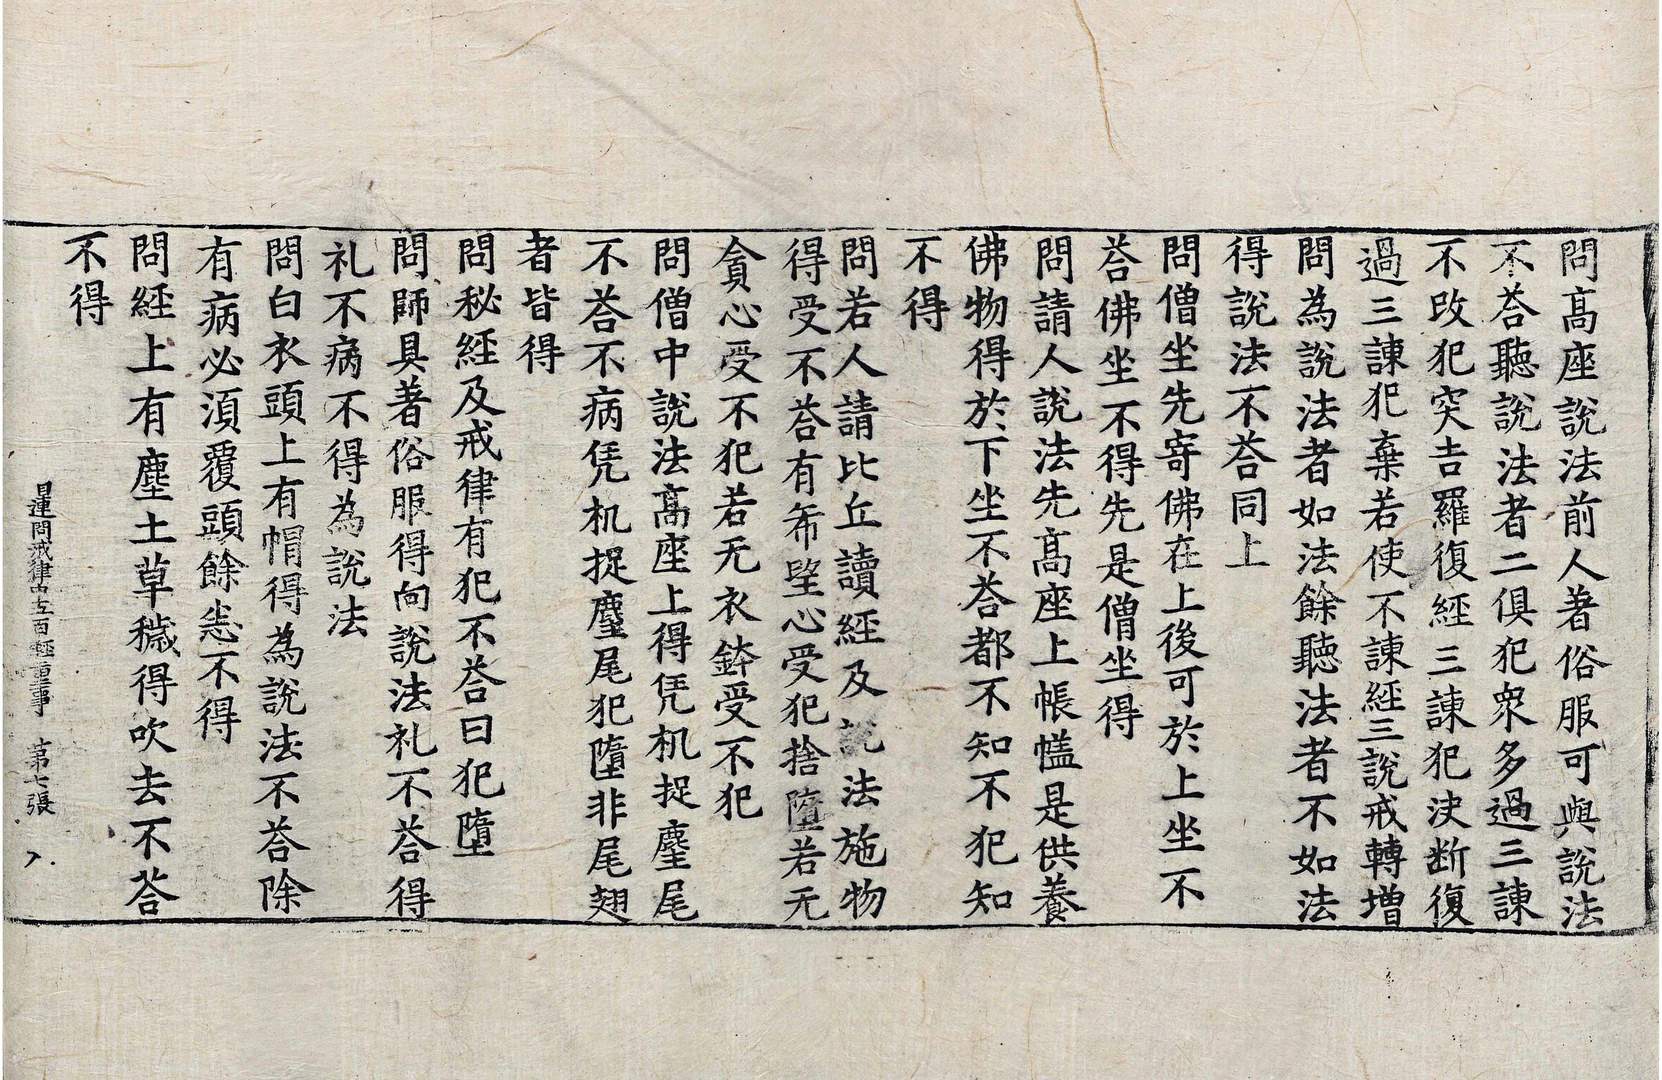 問髙座說法前人著俗服可與說法
不荅聽說法者二俱犯衆多過三諫
不改犯突吉羅復經三諫犯決断復
過三諫犯棄若使不諫經三說戒轉增
問為說法者如法餘聽法者不如法
得說法不荅同上
問僧坐先寄佛在上後可於上坐不
荅佛坐不得先是僧坐得
問請人說法先髙座上帳幰是供養
佛物得於下坐不荅都不知不犯知
不得
問若人請比丘讀經及說法施物
得受不荅有希望心受犯捨墮若无
貪心受不犯若无衣鉢受不犯
問僧中說法髙座上得凭机捉麈尾
不荅不病凭机捉麈尾犯墮非尾翅
者皆得
問秘經及戒律有犯不荅曰犯墮
問師具著俗服得向說法礼不荅得
礼不病不得為說法
問白衣頭上有帽得為說法不荅除
有病必湏覆頭餘恙不得
問經上有塵土草穢得吹去不荅
不得
目連問戒律中五百輕重事 第七張 入